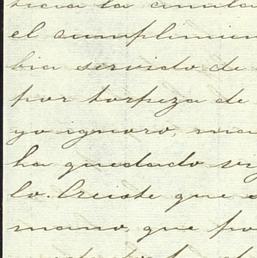 ticia la anula
el cumplimien
bia servido de
por torpeza de
yo ignoro, mia
ha quedado sig
lo. Creiste que
mano, que po